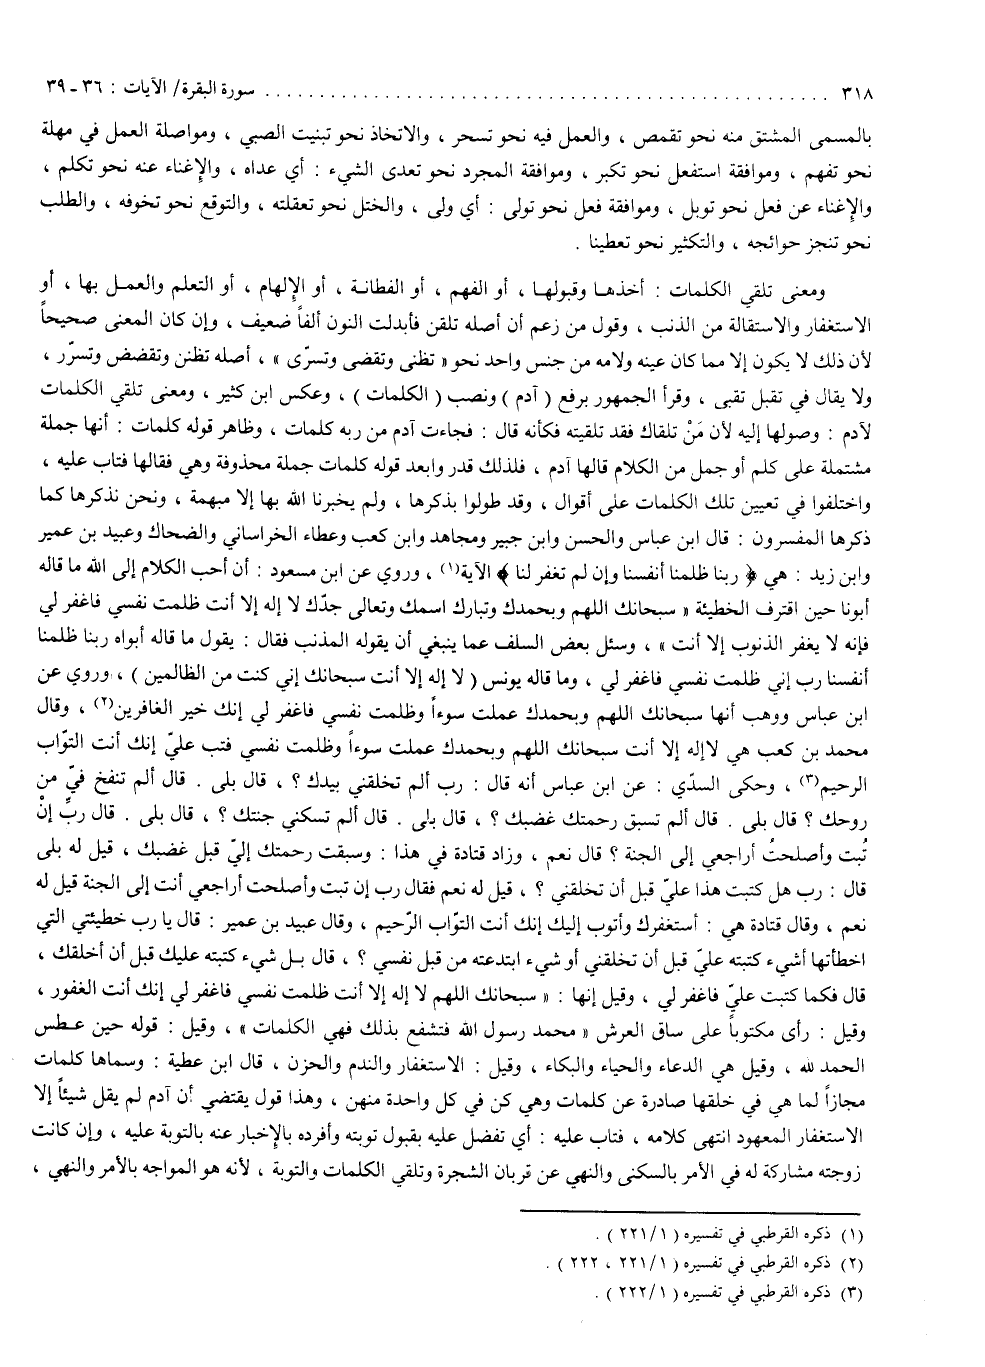 ٣١٨ . . . . . . . . . . . . . . . . . . . . . . . . . . . . . . . . . . . . . . . . . . . . . . . سورة البقرة/ الآيات : ٣٦ - ٣٩
بالمسمى المشتق منه نحو تقمص ، والعمل فيه نحو تسحر ، والاتخاذ نحو تبنيت الصبي ، ومواصلة العمل في مهلة
نحو تفهم ، وموافقة استفعل نحو تكبر ، وموافقة المجرد نحو تعدى الشيء : أي عداه ، والإغناء عنه نحو تكلم ،
والإغناء عن فعل نحو توبل ، وموافقة فعل نحو تولى : أي ولى ، والختل نحو تعقلته ، والتوقع نحو تخوفه ، والطلب
نحو تنجز حوائجه ، والتكثير نحو تعطينا .
ومعنى تلقي الكلمات : أخذها وقبولها ، أو الفهم ، أو الفطانة ، أو الإلهام ، أو التعلم والعمل بها ، أو
الاستغفار والاستقالة من الذنب ، وقول من زعم أن أصله تلقن فأبدلت النون ألفاً ضعيف ، وإن كان المعنى صحيحاً
لأن ذلك لا يكون إلا مما كان عينه ولامه من جنس واحد نحو « تظنى وتقضى وتسرّى » ، أصله تظنن وتقضض وتسرّر ،
ولا يقال في تقبل تقبى ، وقرأ الجمهور برفع ( آدم ) ونصب ( الكلمات ) ، وعكس ابن كثير ، ومعنى تلقي الكلمات
لآدم : وصولها إليه لأن مَنْ تلقاك فقد تلقيته فكأنه قال : فجاءت آدم من ربه كلمات ، وظاهر قوله كلمات : أنها جملة
مشتملة على كلم أو جمل من الكلام قالها آدم ، فلذلك قدر وابعد قوله كلمات جملة محذوفة وهي فقالها فتاب عليه ،
واختلفوا في تعيين تلك الكلمات على أقوال ، وقد طولوا بذكرها ، ولم يخبرنا الله بها إلا مبهمة ، ونحن نذكرها كما
ذكرها المفسرون : قال ابن عباس والحسن وابن جبير ومجاهد وابن كعب وعطاء الخراساني والضحاك وعبيد بن عمير
وابن زيد : هي ﴿ ربنا ظلمنا أنفسنا وإن لم تغفر لنا ﴾ الآية(١) ، وروي عن ابن مسعود : أن أحب الكلام إلى الله ما قاله
أبونا حين اقترف الخطيئة « سبحانك اللهم وبحمدك وتبارك اسمك وتعالى جدّك لا إله إلا أنت ظلمت نفسي فاغفر لي
فإنه لا يغفر الذنوب إلا أنت » ، وسئل بعض السلف عما ينبغي أن يقوله المذنب فقال : يقول ما قاله أبواه ربنا ظلمنا
أنفسنا رب إني ظلمت نفسي فاغفر لي ، وما قاله يونس ( لا إله إلا أنت سبحانك إني كنت من الظالمين ) ، وروي عن
ابن عباس ووهب أنها سبحانك اللهم وبحمدك عملت سوءاً وظلمت نفسي فاغفر لي إنك خير الغافرين(٢) ، وقال
محمد بن كعب هي لاإله إلا أنت سبحانك اللهم وبحمدك عملت سوءاً وظلمت نفسي فتب عليّ إنك أنت التوّاب
الرحيم(٣) ، وحكى السدّي : عن ابن عباس أنه قال : رب ألم تخلقني بيدك ؟ ، قال بلى . قال ألم تنفخ فيّ من
روحك ؟ قال بلى . قال ألم تسبق رحمتك غضبك ؟ ، قال بلى . قال ألم تسكني جنتك ؟ ، قال بلى . قال ربِّ إنْ
تُبت وأصلحتُ أراجعي إلى الجنة ؟ قال نعم ، وزاد قتادة في هذا : وسبقت رحمتك إليّ قبل غضبك ، قيل له بلى
قال : رب هل كتبت هذا عليّ قبل أن تخلقني ؟ ، قيل له نعم فقال رب إن تبت وأصلحت أراجعي أنت إلى الجنة قيل له
نعم ، وقال قتادة هي : أستغفرك وأتوب إليك إنك أنت التوّاب الرّحيم ، وقال عبيد بن عمير : قال يا رب خطيئتي التي
اخطأتها أشيء كتبته عليّ قبل أن تخلقني أو شيء ابتدعته من قبل نفسي ؟ ، قال بل شيء كتبته عليك قبل أن أخلقك ،
قال فكما كتبت عليّ فاغفر لي ، وقيل إنها : « سبحانك اللهم لا إله إلا أنت ظلمت نفسي فاغفر لي إنك أنت الغفور ،
وقيل : رأى مكتوباً على ساق العرش « محمد رسول الله فتشفع بذلك فهي الكلمات » ، وقيل : قوله حين عطس
الحمد لله ، وقيل هي الدعاء والحياء والبكاء ، وقيل : الاستغفار والندم والحزن ، قال ابن عطية : وسماها كلمات
مجازاً لما هي في خلقها صادرة عن كلمات وهي كن في كل واحدة منهن ، وهذا قول يقتضي أن آدم لم يقل شيئاً إلا
الاستغفار المعهود انتهى كلامه ، فتاب عليه : أي تفضل عليه بقبول توبته وأفرده بالإخبار عنه بالتوبة عليه ، وإن كانت
زوجته مشاركة له في الأمر بالسكنى والنهي عن قربان الشجرة وتلقي الكلمات والتوبة ، لأنه هو المواجه بالأمر والنهي ،
(١) ذكره القرطبي في تفسيره ( ٢٢١/١ ) .
(٢) ذكره القرطبي في تفسيره ( ٢٢١/١ ، ٢٢٢ ) .
(٣) ذكره القرطبي في تفسيره ( ٢٢٢/١ ) .